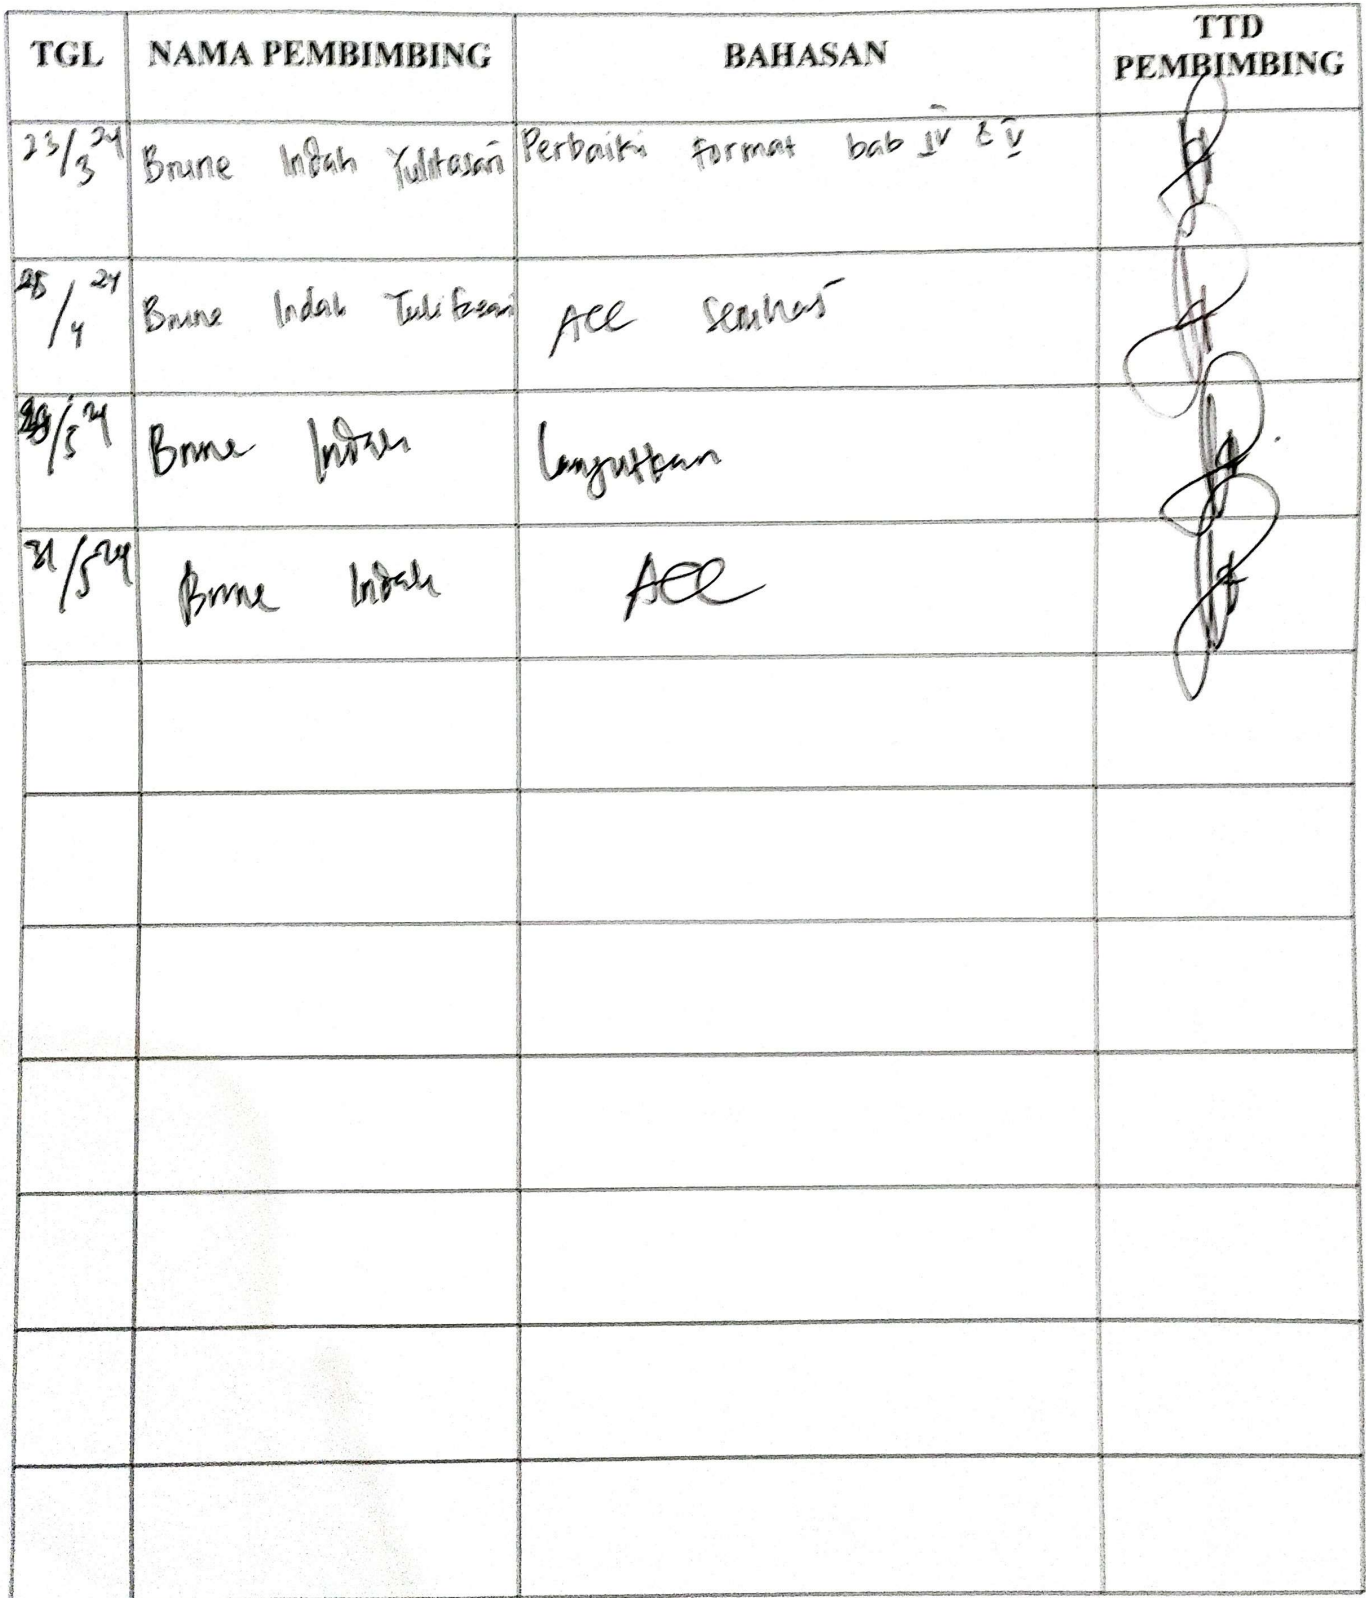 TGL NAMA PEMBIMBING BAHASAN TTD PEMBIMBING
23/3 24 Brune Indah Yulitasari Perbaiki format bab IV & V
/4 24 Brune Indah Yulitasari ACC Semhas
/5 24 Brune Indah Lanjutkan
31/5 24 Brune Indah ACC